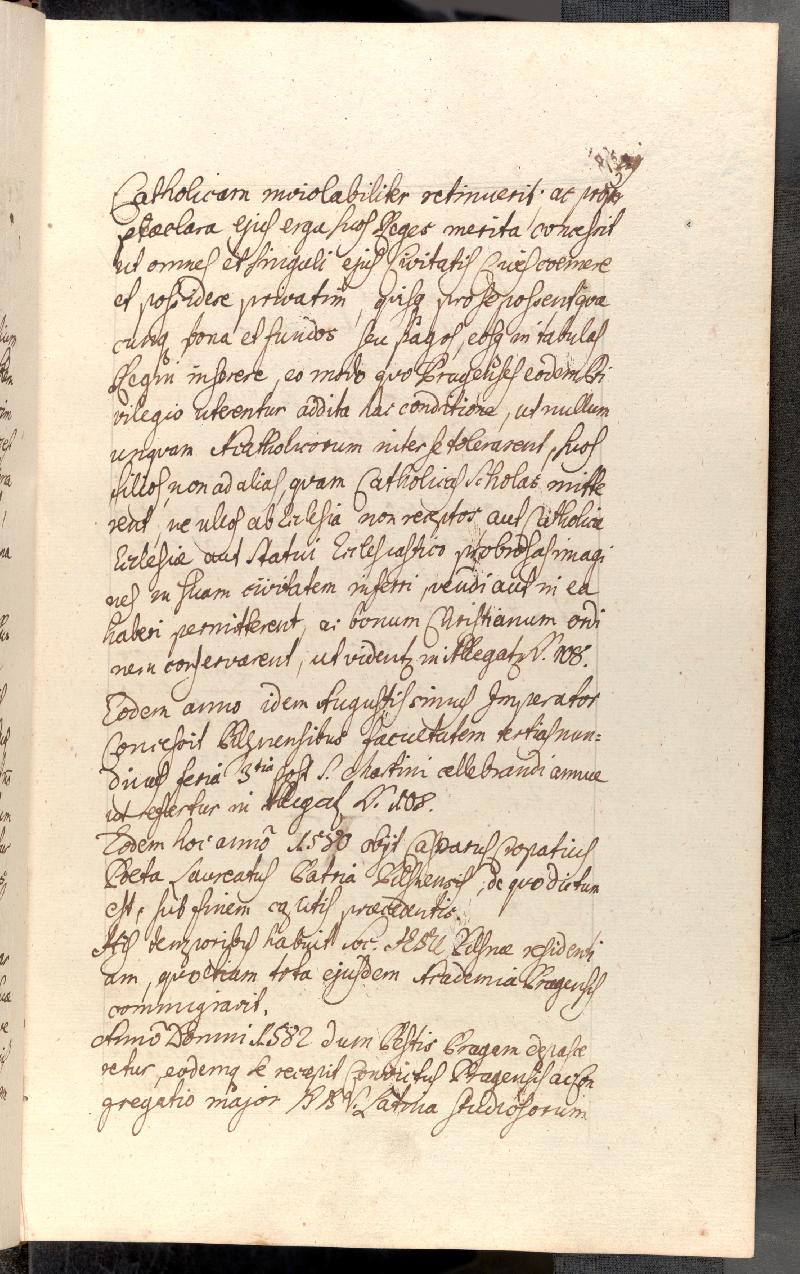 Catholicam inviolabiliter retinuerit: ac propter
praeclara ejus erga suos Reges merita concessit
ut omnes et singuli ejus Civitatis Cives coemere
et possidere privatim, quisq pro se possent quae
cunq bona et fundos, seu pagos, eosq in tabulas
Regni inserere, eo modo quo Pragenses eodem Pri
vilegio uterentur addita hac conditione, ut nullum
unquam Acatholicorum inter se tolerarent, suos
filios, non ad alias, quam Catholicas Scholas mitte
rent, ne ullos ab Ecclesia non receptos, aut Catholicae
Ecclesiae aut Statui Ecclesiastico probrosas imagi
nes in suam civitatem inferri, vendi aut in ea
haberi permitterent, ac bonum Christianum ordi
nem conservarent, ut videntr in Allegat N. 108.
Eodem anno idem Augustissimus Imperator
Concessit Pilsnensibus facultatem tertias nun=
dinas feria 3tia post S. Martini cellebrandi annue
ut refertur in Allegat N. 108.
Eodem hoc anno 1580 obijt Casparus Cropatius
Poeta Laureatus Patria Pilsnensis, de quo dictum
est, sub finem capitis praecedentis.
His temporibus habuit Soc. JESU Pilsnae residenti
am, quo etiam tota ejusdem Academia Pragensis
commigravit.
Anno Domini 1582 dum Pestis Pragam depasce
retur, eodemq se recepit Convictus Pragensis ac Con
gregatio major B V. Latina Studiosorum